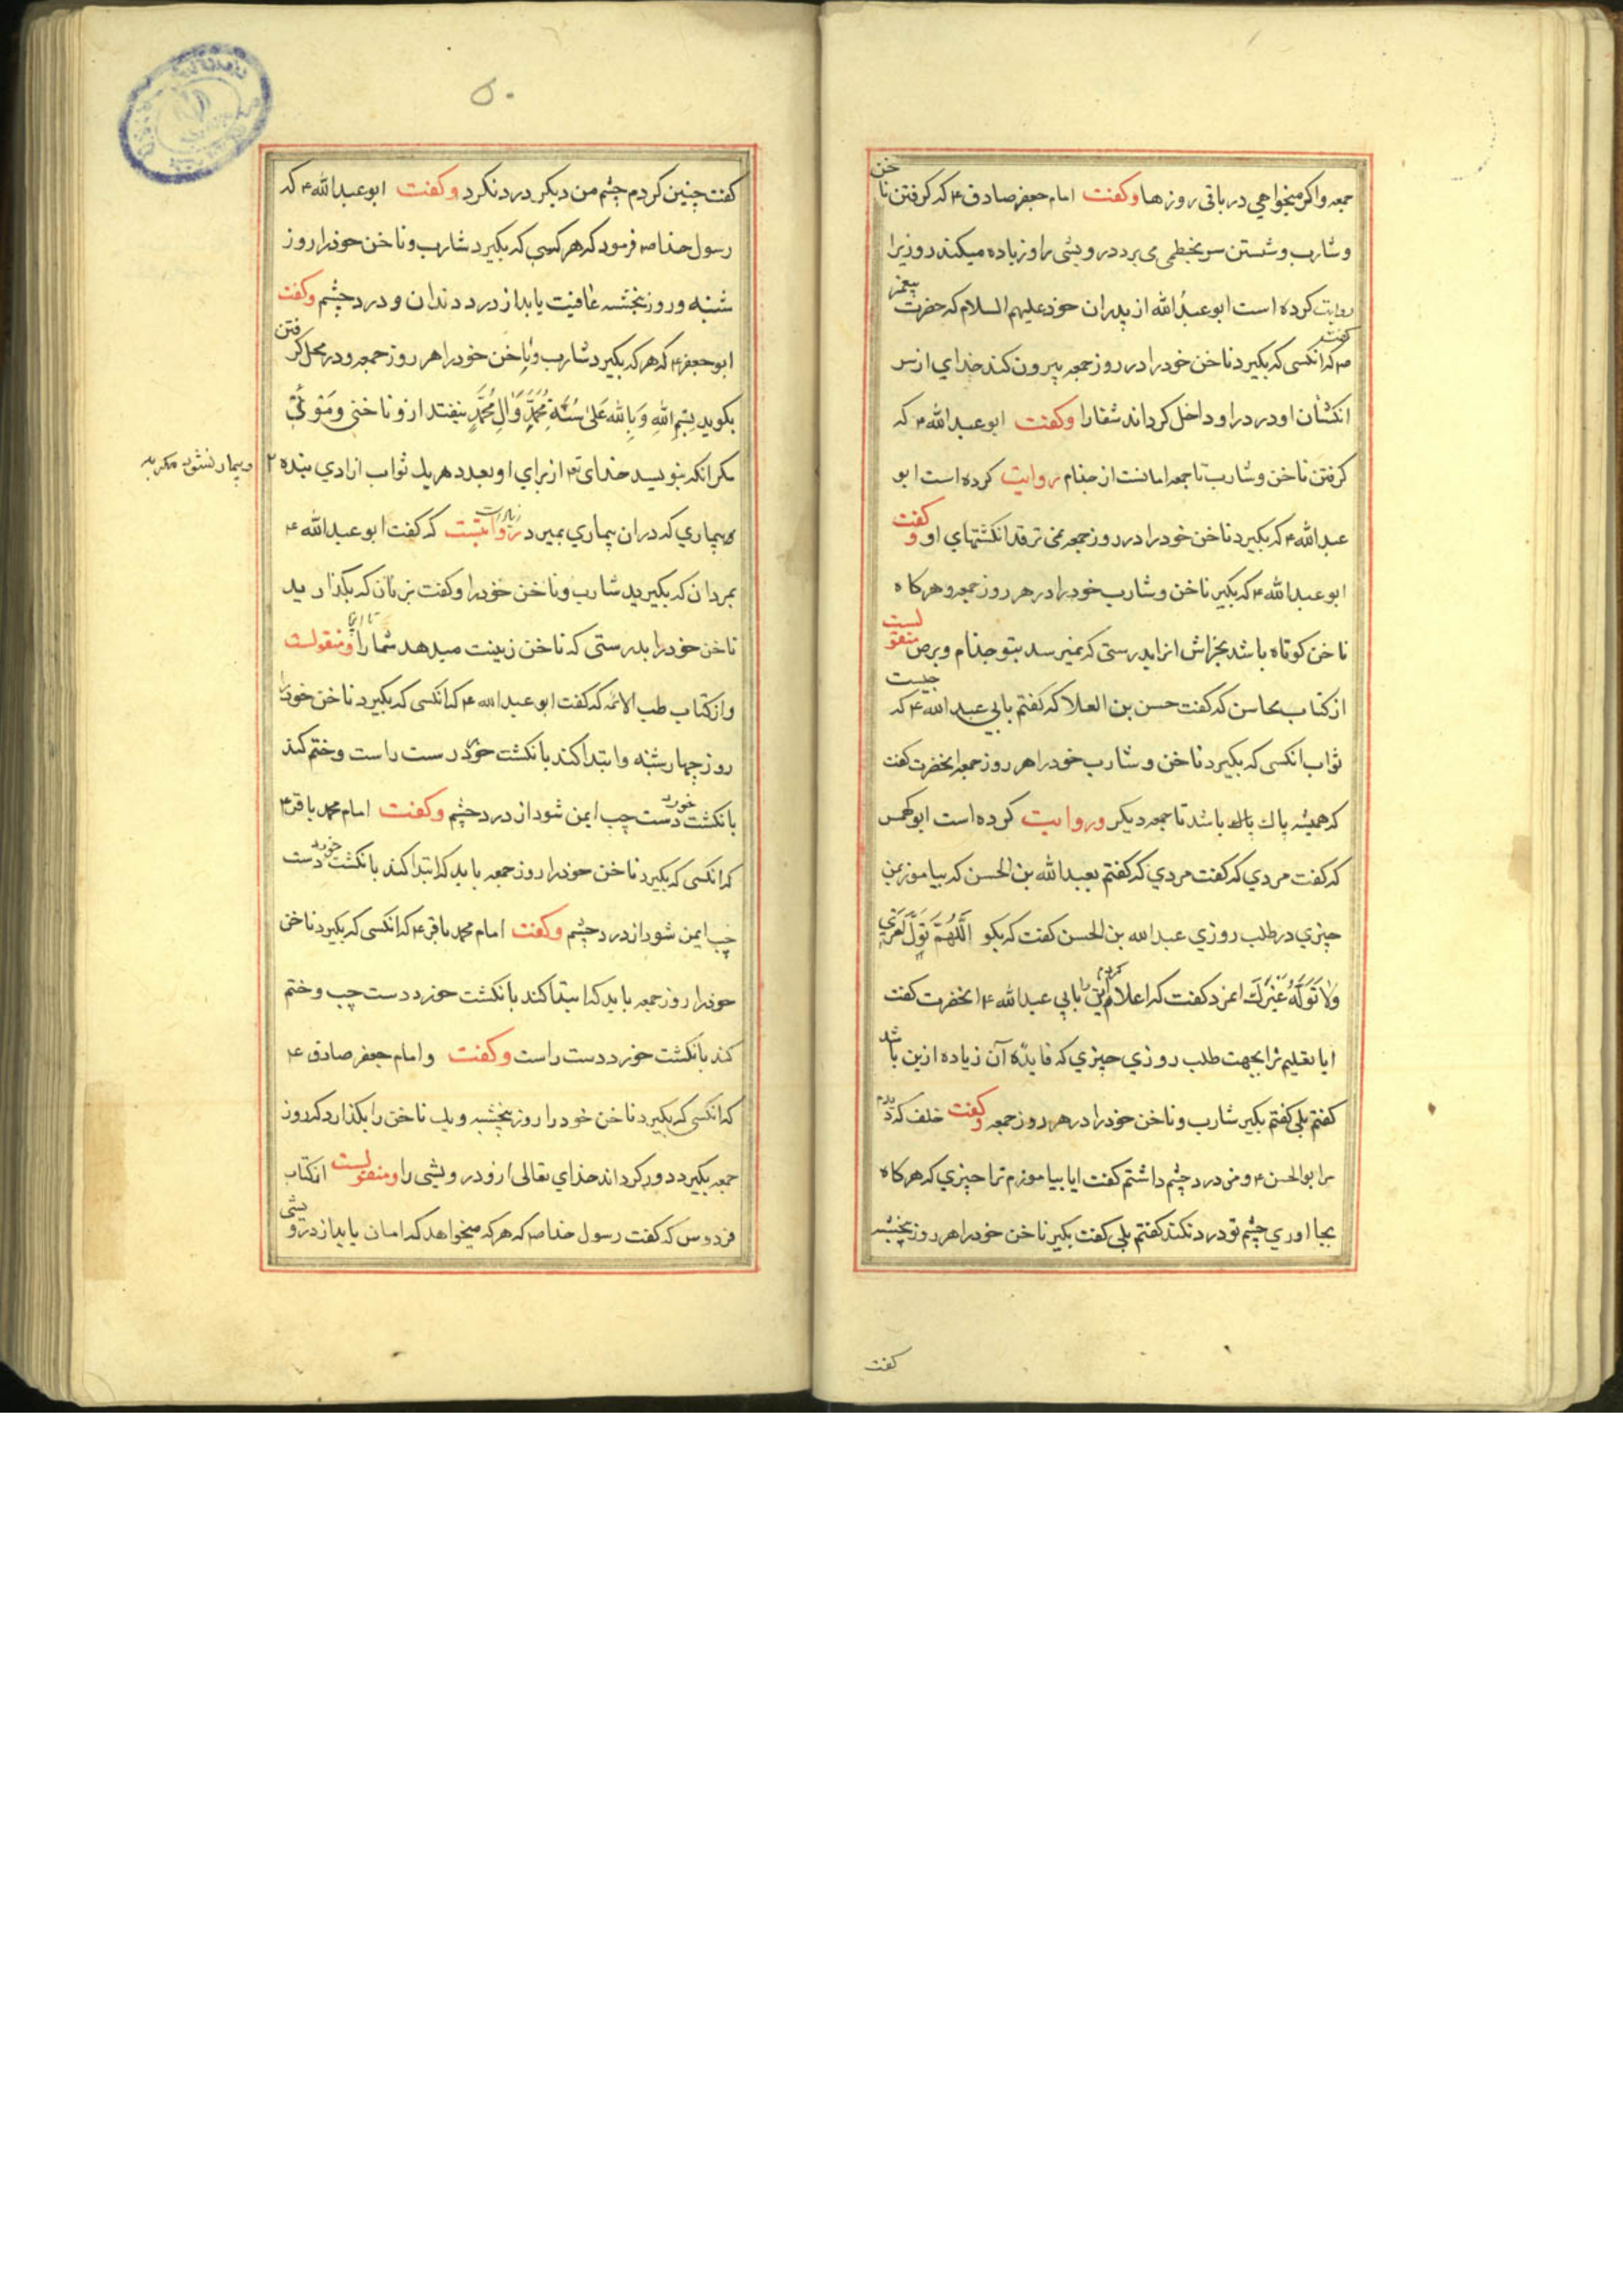 جمعه واکر میخواهی در باقی روزها وکفت امام جعفر صادق ۴ که کرفتن ناخن
وشارب وشستن سر بخطمی می برد درویشی را وزیاده میکند روزیرا
روایت کرده است ابو عبدالله از پدران خود علیهم السلام که حضرت پیغمبر
صم کفت که انکسی که بکیرد ناخن خود را در روز جمعه بیرون کند خدای از سر
انکشتان او درد را و داخل کرداند شفا را وکفت ابو عبدالله ۴ که
کرفتن ناخن وشارب تا جمعه امانست از جذام روایت کرده است ابو
عبدالله ۴ که بکیرد ناخن خود را در روز جمعه نمی ترقد انکشتهای او وکفت
ابو عبدالله ۴ که بکیر ناخن وشارب خود را در هر روز جمعه وهرکاه
ناخن کوتاه باشد بخراش انرا بدرستی که نمیرسد بتو جذام وبرص منقولست
از کتاب محاسن که کفت حسن بن العلا که کفتم بابی عبدالله ۴ که چیست
ثواب انکسی که بکیرد ناخن وشارب خود را هر روز جمعه انحضرت کفت
که همیشه پاك پاك باشد تا جمعه دیکر وروایت کرده است ابو کهمس
که کفت مردی که کفت مردی که کفتم بعبدالله بن الحسن که بیاموز بمن
چیزی در طلب روزی عبدالله بن الحسن کفت که بکو اَللّهُمَّ تَوَلَّ اَمْرِی
وَلَا تُوَلِّهُ غَیْرَكَ کفت که اعلام کردم این را بابی عبدالله ۴ انحضرت کفت
ایا تعلیم ترا بجهت طلب روزی چیزی که فایدهٔ آن زیاده ازین باشد
کفتم بلی کفتم بکیر شارب وناخن خود را در هر روز جمعه وکفت خلف که دید
مرا ابو الحسن ۴ ومن درد چشم داشتم کفت ایا بیاموزم ترا چیزی که هرکاه
بجا اوری چشم تو درد نکند کفتم بلی کفت بکیر ناخن خود را هر روز پنجشنبه
کفت
۵۰
کفت چنین کردم چشم من دیکر درد نکرد وکفت ابو عبدالله ۴ که
رسول خدا صم فرمود که هر کسی که بکیرد شارب وناخن خود را روز
شنبه وروز پنجشنبه عافیت یابد از درد دندان ودرد چشم وکفت
ابو جعفر ۴ که هرکه بکیرد شارب وناخن خود را هر روز جمعه ودر محل کرفتن
بکوید بِسْمِ اللهِ وَبِاللهِ عَلیٰ سُنَّةِ مُحَمَّدٍ وَآلِ مُحَمَّدٍ نیفتد ازو ناخنی ومَوئی
مکر انکه بنویسد خدای تعم از برای او بعدد هر یك ثواب ازادی بنده ۲
وبیمار نشود مکر به
بیماری که دران بیماری بمیرد روایتست که کفت ابو عبدالله ۴
بمردان که بکیرید شارب وناخن خود را وکفت بزنان که بکذارید
ناخن خود را بدرستی که ناخن زینت میدهد شما را ومنقولست
واز کتاب طب الائمه که کفت ابو عبدالله ۴ که انکسی که بکیرد ناخن خود را
روز چهارشنبه وابتدا کند بانکشت خورد دست راست وختم کند
بانکشت خورد دست چپ ایمن شود از درد چشم وکفت امام محمد باقر ۴
که انکسی که بکیرد ناخن خود را روز جمعه باید که ابتدا کند بانکشت خورد دست
چپ ایمن شود از درد چشم وکفت امام محمد باقر ۴ که انکسی که بکیرد ناخن
خود را روز جمعه باید که ابتدا کند بانکشت خورد دست چپ وختم
کند بانکشت خورد دست راست وکفت وامام جعفر صادق ۴
که انکسی که بکیرد ناخن خود را روز پنجشنبه ویك ناخن را بکذارد که روز
جمعه بکیرد دور کرداند خدای تعالی ازو درویشی را ومنقولست از کتاب
فردوس که کفت رسول خدا صم که هرکه میخواهد که امان یابد از درویشی